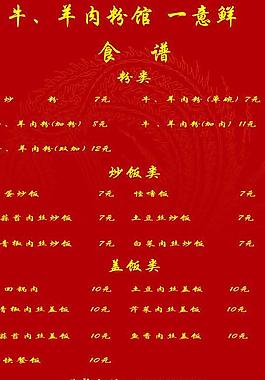 牛、羊肉粉馆 一意鲜
食 谱
粉类
炒 粉 7元 牛、羊肉粉(单碗) 7元
、羊肉粉(加粉) 8元 牛、羊肉粉(加肉) 11元
、羊肉粉(双加) 12元
炒饭类
蛋炒饭 7元 怪噜饭 7元
蒜苔肉丝炒饭 7元 土豆丝炒饭 7元
青椒肉丝炒饭 7元 白菜肉丝炒饭 7元
盖饭类
回锅肉 10元 土豆肉丝盖饭 10元
青椒肉丝盖饭 10元 芹菜肉丝盖饭 10元
蒜苔肉丝盖饭 10元 鱼香肉丝盖饭 10元
快餐饭 10元